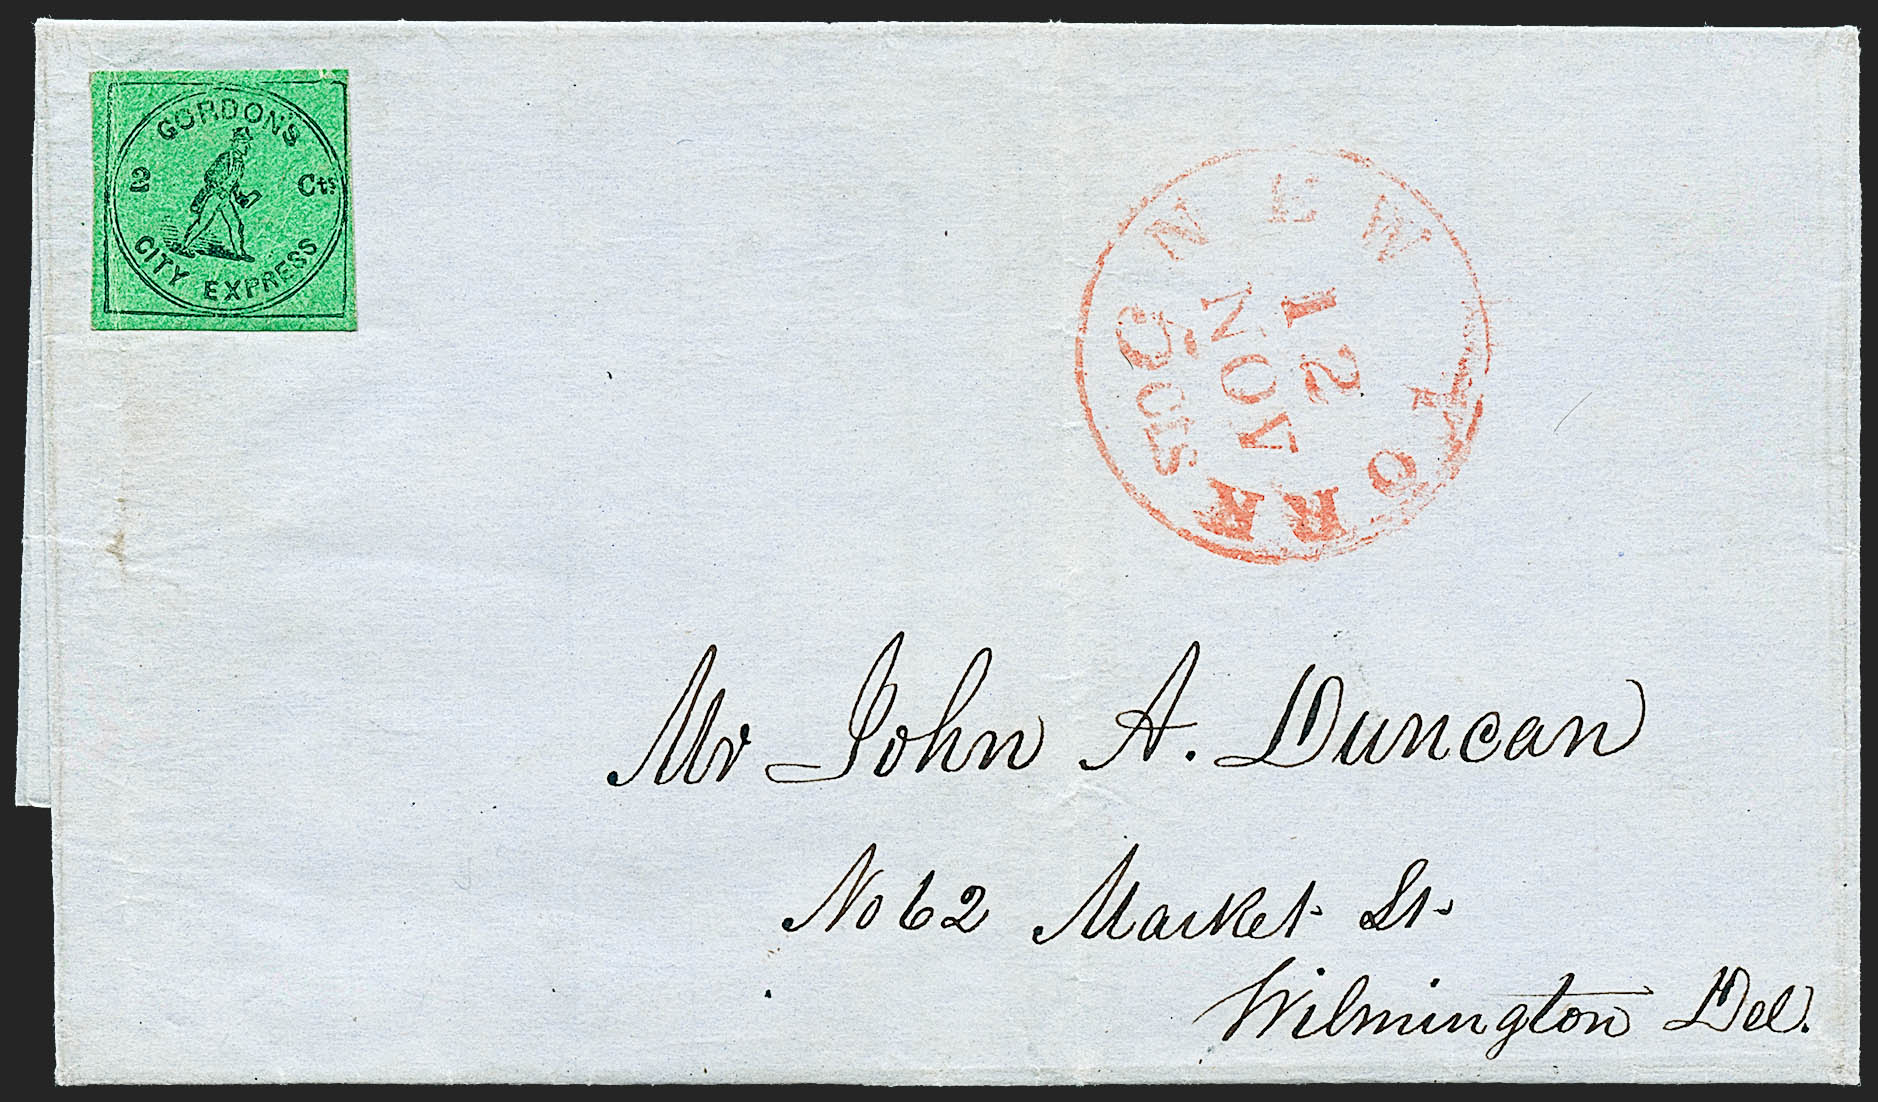 GORDON'S
2 Cts
CITY EXPRESS
NEW YORK
12
NOV
5 cts
Mr John A. Duncan
No 62 Market St.
Wilmington Del.